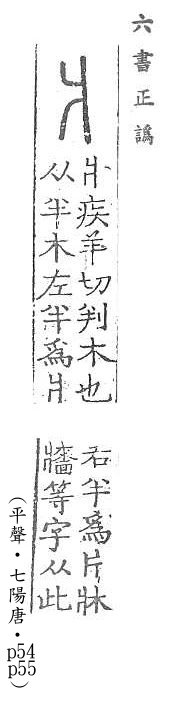 六書正譌
爿疾羊切判木也
从半木左半爲爿
右半爲片牀
牆等字从此
（平聲・七陽唐・p54
p55）